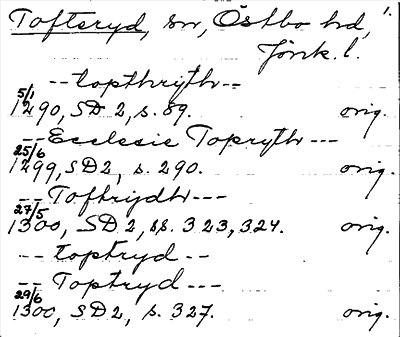 Tofteryd, sn, Östbo hd, 1.
Jönk. l.
-- topthryth --
5/1 1290, SD 2, s. 89. orig.
-- Ecclesie Topryth ---
25/6 1299, SD 2, s. 290. orig.
-- Toftrydh ---
27/5 1300, SD 2, ss. 323, 324. orig.
-- toptryd --
-- Toptryd ---
29/6 1300, SD 2, s. 327. orig.